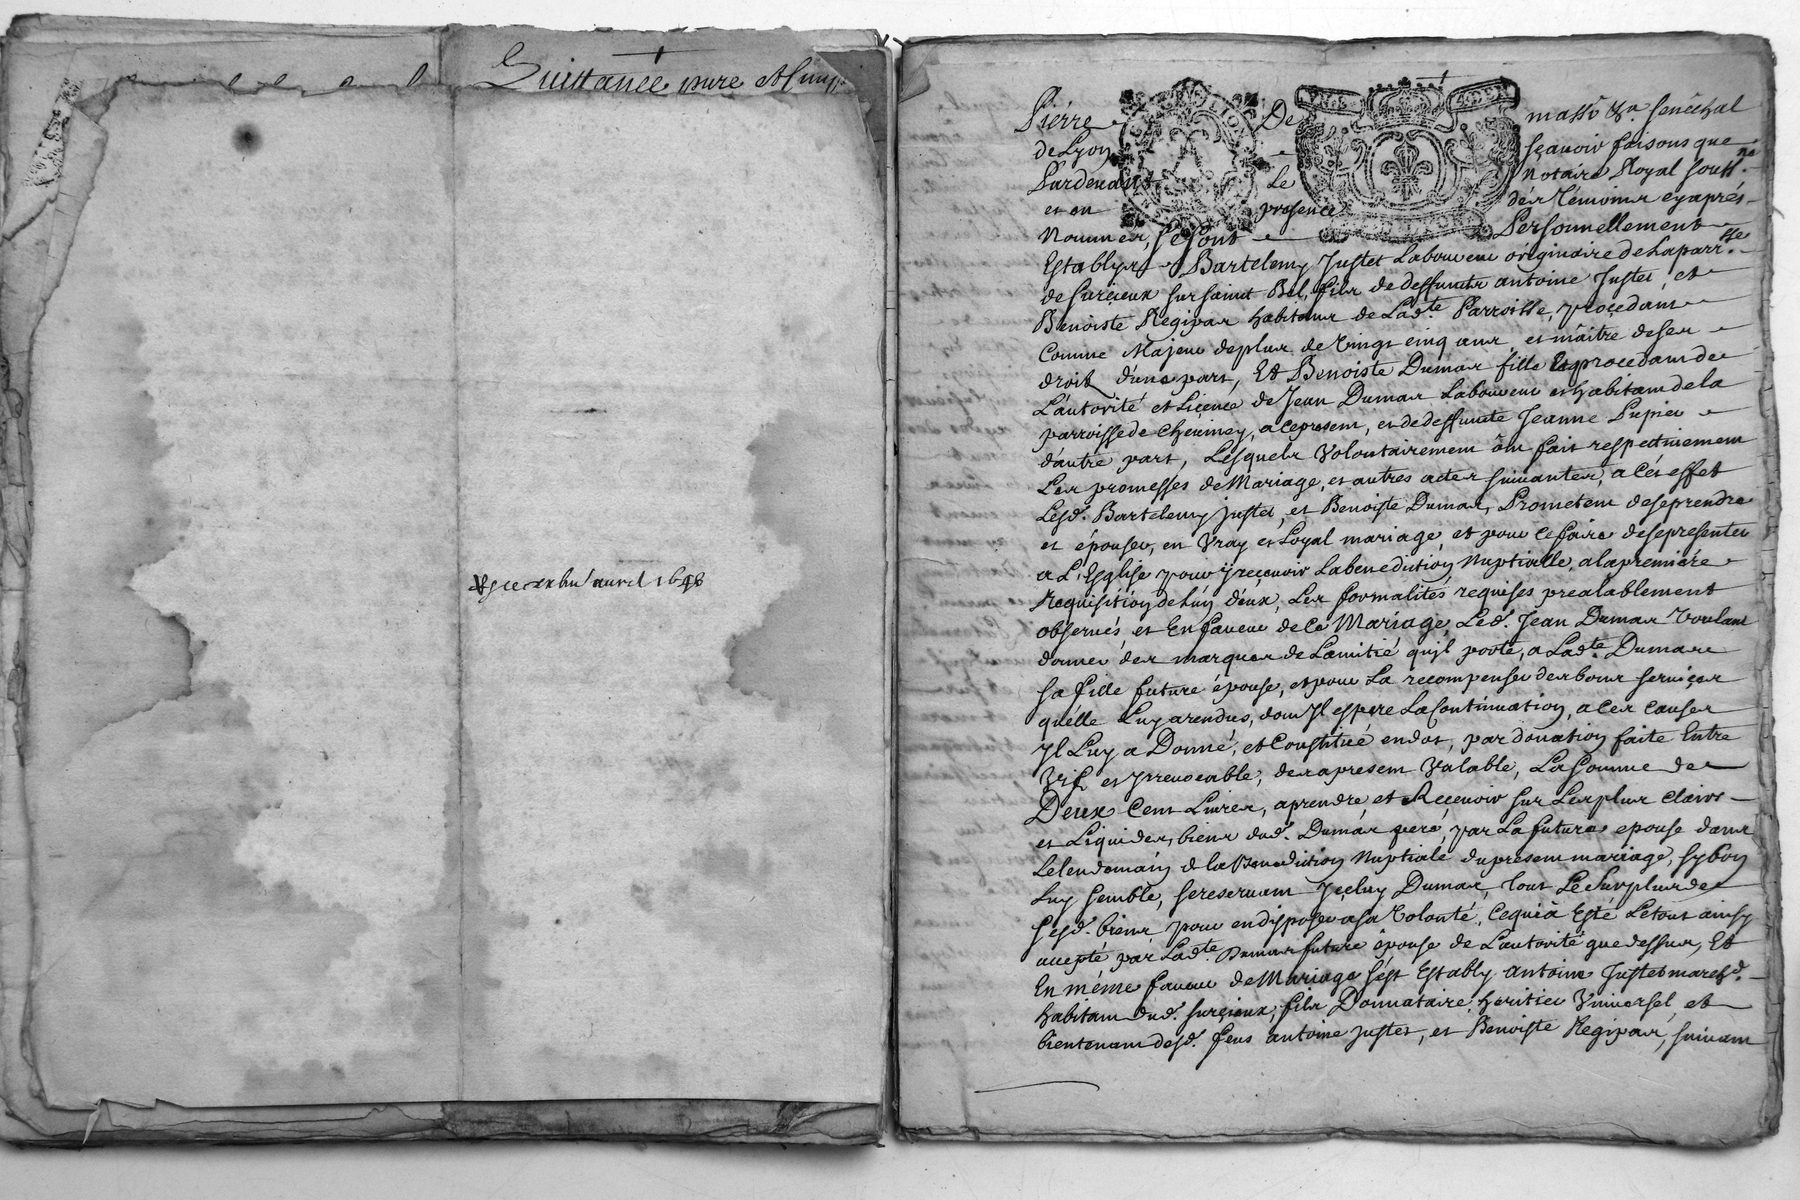 Quittance pure &
avril 1698
Pierre De massô Sr. senéchal
de Lyon sçavoir faisons que
Pardevant Le Notaire Royal souss.né
et en presence des Témoins cyaprés
Nommés, se sont Personnellement
Establys Bartelemy Justet Laboureur originaire de Laparr.sse
de Surçieux sur saint Bel, fils de deffunts antoine Justet, et
Benoiste Régipas habitans de Lad.te Parroisse, procedant
Comme Majeur deplus de Vingt cinq ans, et maître deses
droits d'une part, Et Benoiste Dumas fille procedant de
L'autorité et Liçence de Jean Dumas Laboureur et habitant dela
parroisse de Chevinay, acepresent, et de deffunte Jeanne Pupier
d'autre part, Lesquels Volontairement ônt fait respectivement
Les promesses de Mariage, et autres actes suivantes, a Cét effet
Lesd. Bartelemy Justet, et Benoiste Dumas, Prometent deseprendre
et épouser, en Vray et Loyal mariage, et pour cefaire desepresenter
a L'Esglise pour y reçevoir Labenediction Nuptialle, alapremiére
Requisition de L'un d'eux, Les formalités requises prealablement
observés, et En faveur de Ce Mariage, Led. Jean Dumas Voulant
donner des marques de Lamitié qu'jl porte, a Lad.te Dumas
sa fille future épouse, et pour La recompenser des bons serviçes
qu'elle Luy a rendus, dont Jl espere La Continuation, a Ces Causes
Jl Luy a Donné, et Constitué en dot, par donation faite Entre
Vifs et Jrrevocable, des apresent Valable, La somme de
Deux Cent Livres, aprendre et Reçevoir sur Les plus Clairs
et Liquides, biens dud. Dumas pere, par La future epouse dans
Lelendemain de la Benediction Nuptiale du present mariage, sy bon
Luy semble, se reservant Jçeluy Dumas, tout Le surplus de
sesd. biens pour en disposer a sa Volonté, Ce qui à Esté Letout ainsy
accepté par Lad.te Dumas future épouse de L'autorité que dessus, Et
En méme faveur de Mariage s'ést Estably antoine Justet march.d
habitant dud. Surçieux, fils Donnataire, heritier Vniversel, et
bientenant desd. feus antoine Justet, et Benoiste Régipas, suivant